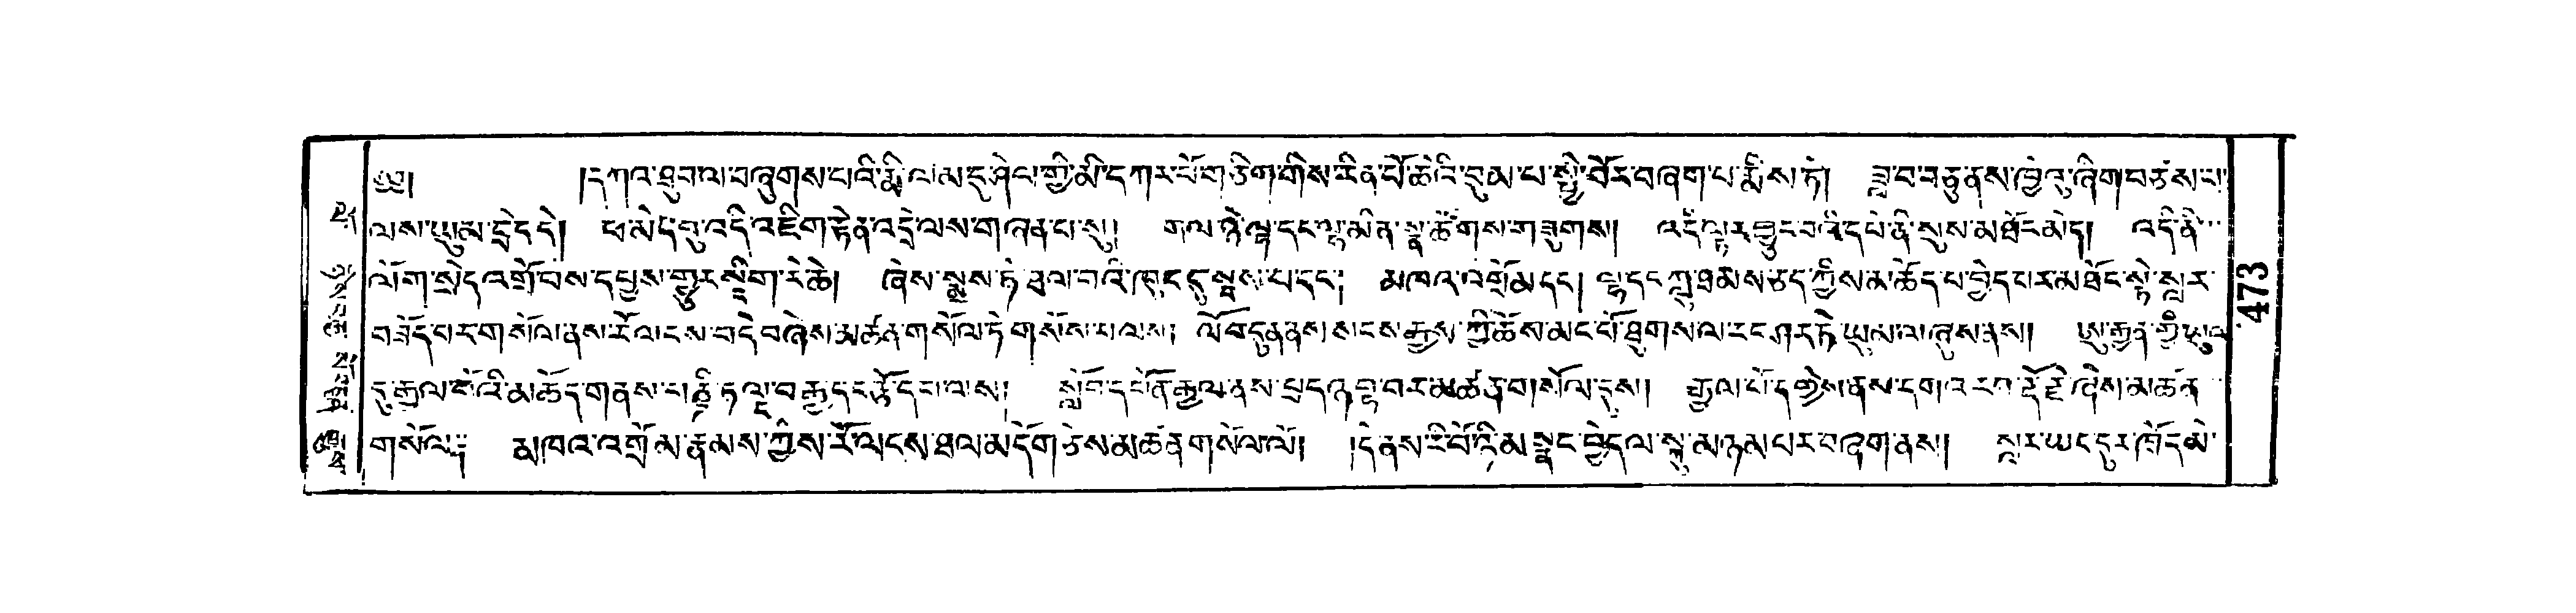 ༄༅། །དཀའ་ཐུབ་ལ་བཞུགས་པའི་རྨི་ལམ་དུ་ཤེལ་གྱི་མི་དཀར་པོ་གཅིག་གིས་རིན་པོ་ཆེའི་བུམ་པ་སྤྱི་བོར་བཞག་པ་རྨིས་ཏེ། ཟླ་བ་བཅུ་ནས་ཁྱེའུ་ཞིག་བཙས་པ་
ལས་ཡུམ་དྲེད་དེ། ཕ་མེད་བུ་འདི་འཇིག་རྟེན་འདྲེ་ལས་གཞན་པ་སུ། གལ་ཏེ་ལྷ་དང་ལྷ་མིན་སྣ་ཚོགས་གཟུགས། འདི་ལྟར་བྱུང་བའི་དཔེ་ནི་སུས་མཐོང་མེད། འདི་ནི་
ལོག་སྲེད་འགྲོ་བས་དཔྱས་གྱུར་སྡིག་རེ་ཆེ། ཞེས་སྨྲས་ཏེ་ཐལ་བའི་ཁུང་དུ་སྦས་པ་དང་། མཁའ་འགྲོ་མ་དང་། ལྷ་དང་ཀླུ་ཐམས་ཅད་ཀྱིས་མཆོད་པ་བྱེད་པར་མཐོང་སྟེ་སླར་
བཟོད་པར་གསོལ་ནས་རོ་ལངས་བདེ་བ་ཞེས་མཚན་གསོལ་ཏེ་གསོས་པ་ལས། ལོ་བདུན་ནས་སངས་རྒྱས་ཀྱི་ཆོས་མང་པོ་ཐུགས་ལ་རང་ཤར་ཏེ་ཡུམ་ལ་ཞུས་ནས། ཨུ་རྒྱན་གྱི་ཡུལ་
དུ་རྒྱལ་པོའི་མཆོད་གནས་པཎྜི་ཏ་ལྔ་བརྒྱ་དང་རྩོད་པ་ལས། སློབ་དཔོན་རྒྱལ་ནས་པྲ་དཉ་བྷ་བར་མཚན་གསོལ་དུས། རྒྱལ་པོ་དགྱེས་ནས་དགའ་རབ་རྡོ་རྗེ་ཞེས་མཚན་
གསོལ༑ མཁའ་འགྲོ་མ་རྣམས་ཀྱིས་རོ་ལངས་ཐལ་མདོག་ཅེས་མཚན་གསོལ་ལོ། །དེ་ནས་རི་བོ་ཉི་མ་སྣང་བྱེད་ལ་སྐུ་མཉམ་པར་བཞག་ནས། སླར་ཡང་དུར་ཁྲོད་མེ་
473